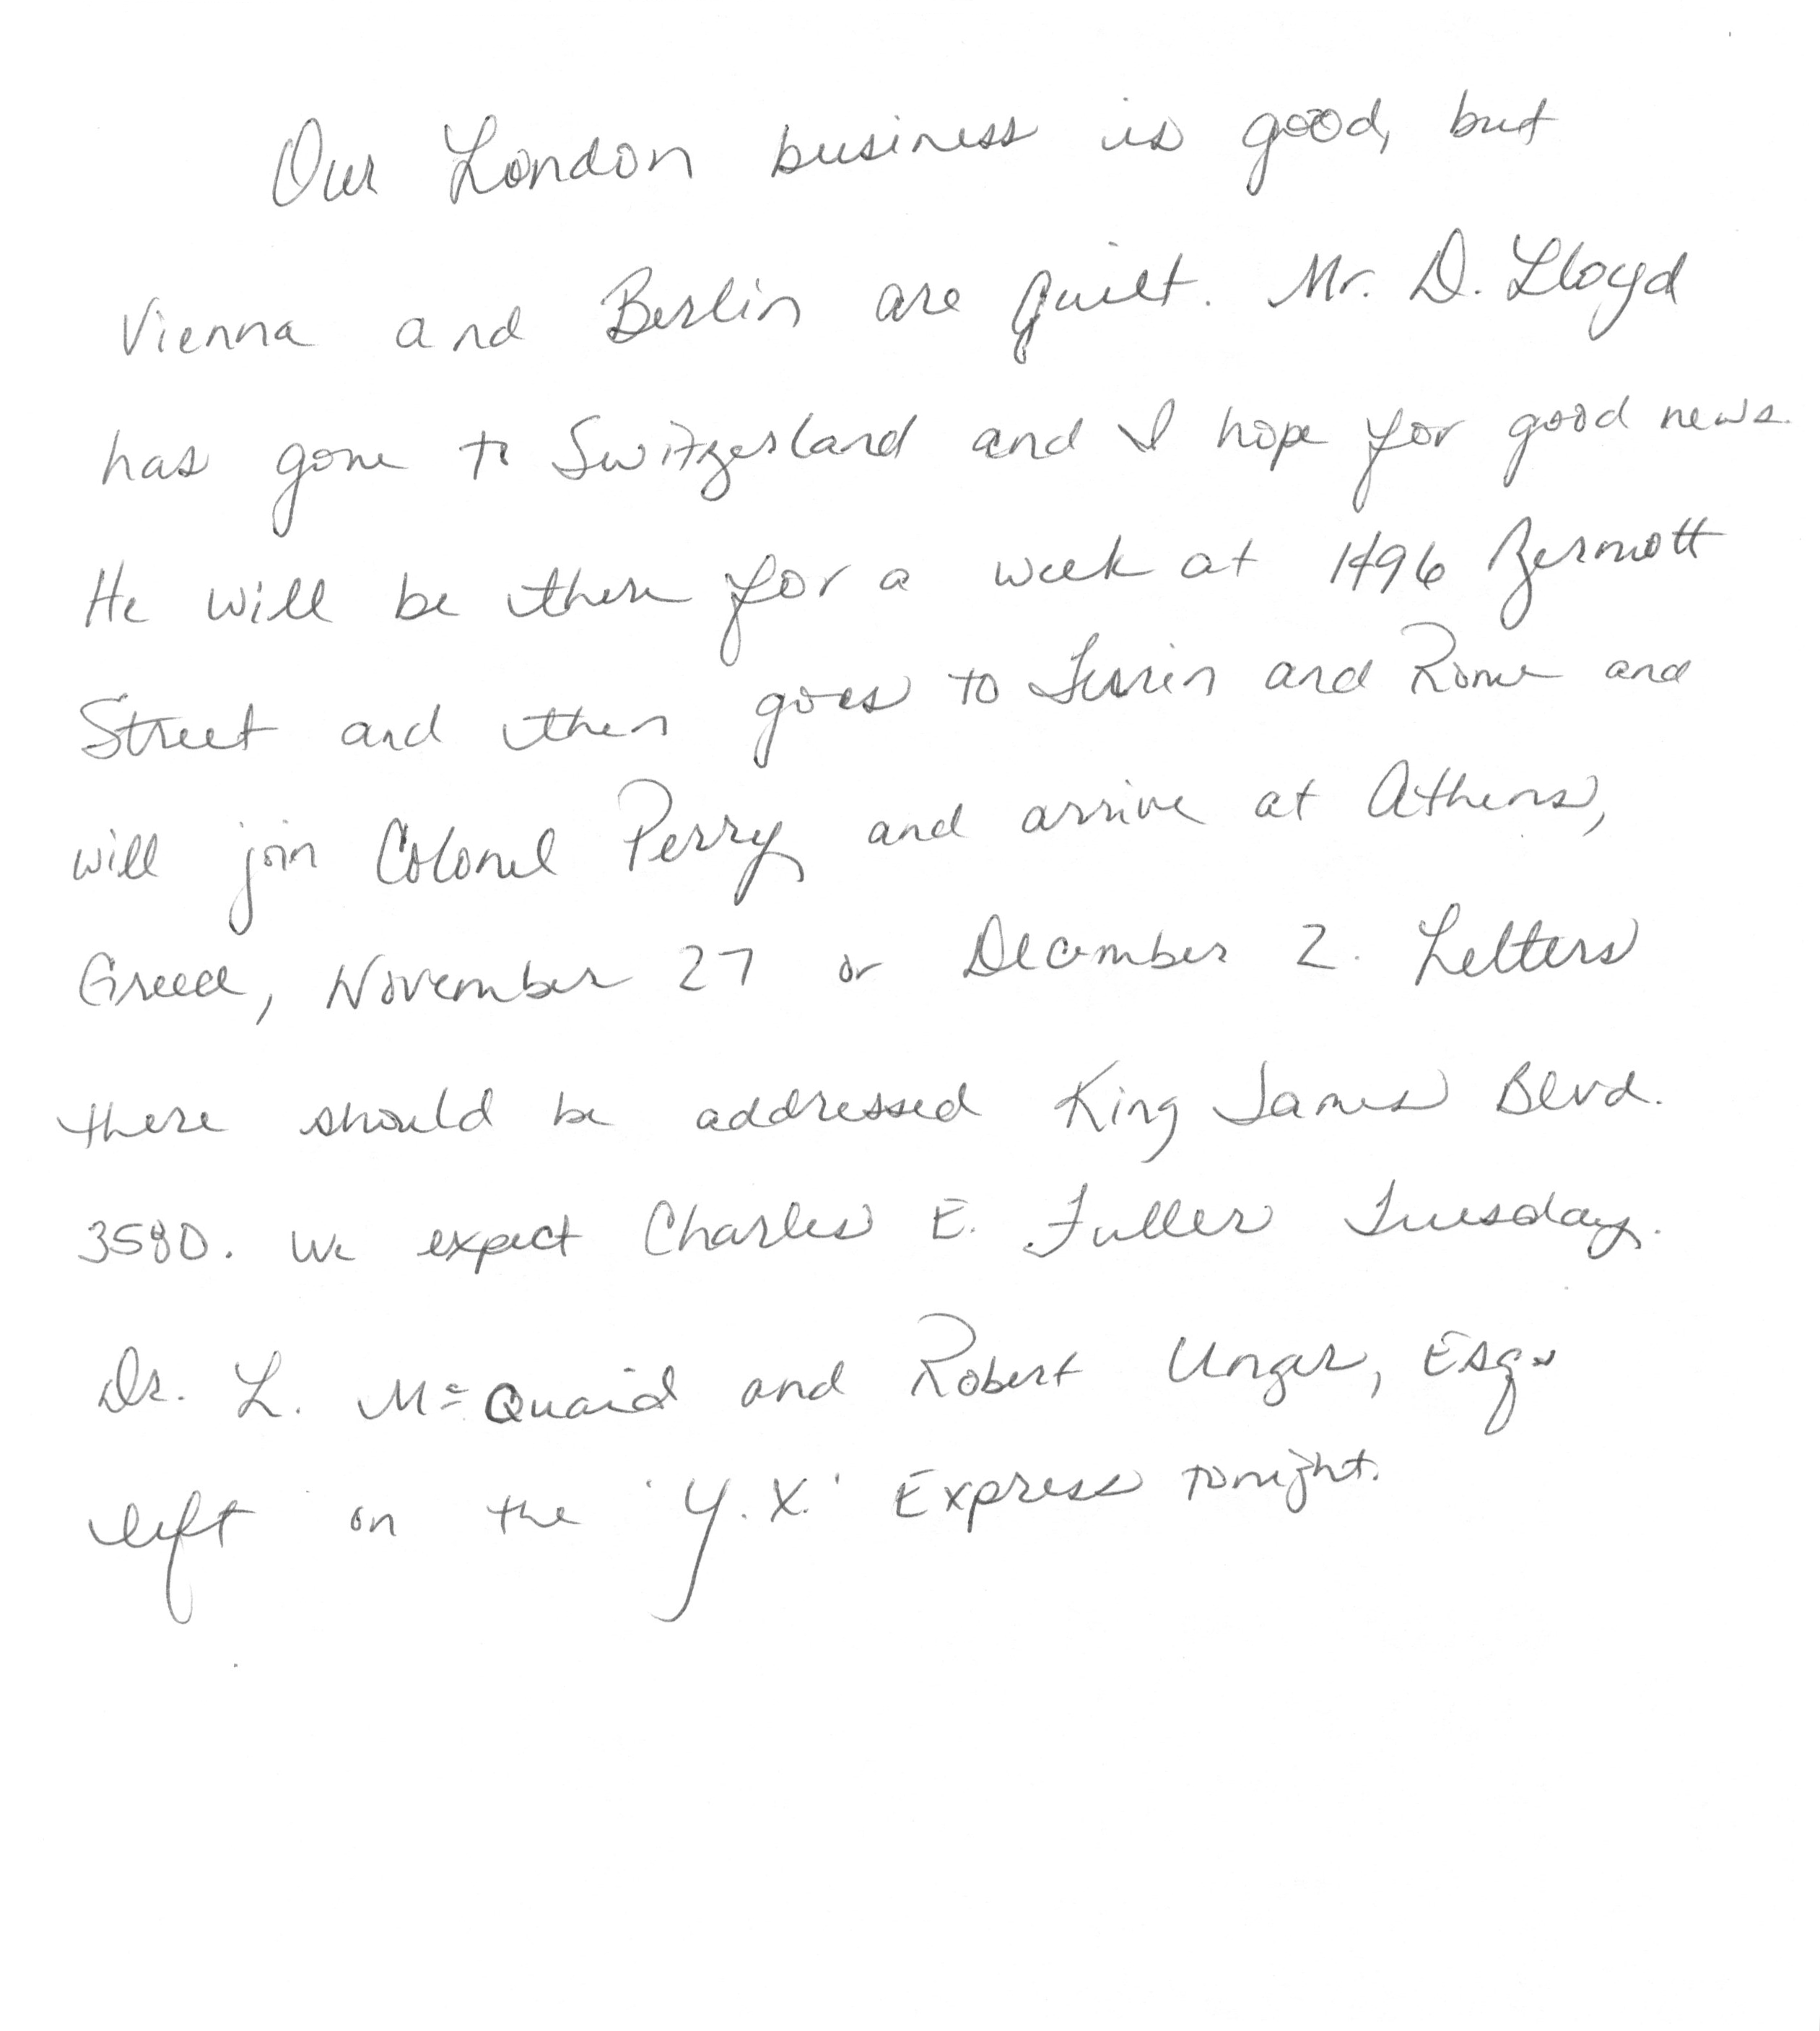 Our London business is good, but
Vienna and Berlin are quiet. Mr. D. Lloyd
has gone to Switzerland and I hope for good news.
He will be there for a week at 1496 Zermott
Street and then goes to Turin and Rome and
will join Colonel Perry and arrive at Athens,
Greece, November 27 or December 2. Letters
there should be addressed King James Blvd.
3580. We expect Charles E. Fuller Tuesday.
Dr. L. McQuaid and Robert Unger, Esq.
left on the 'Y.X.' Express tonight.